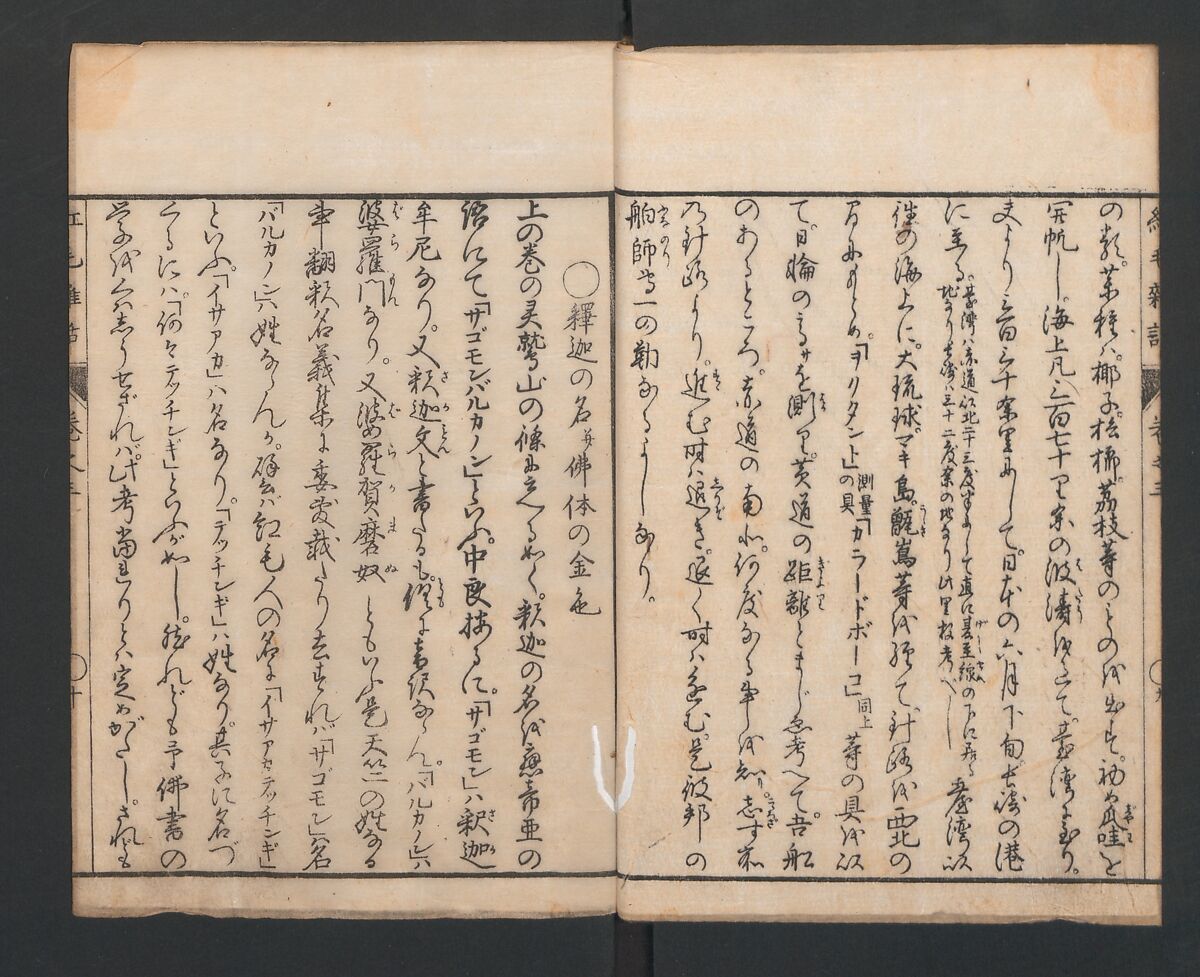 の類。菓種ハ。椰子。桄榔。荔枝等のものを出す。初め爪哇を
開帆し。海上凡三百七十里余の波濤をへて。臺湾に至り。
夫より三百三十余里にして。日本の六月下旬。長崎の港
に至る。臺湾ハ赤道以北二十三度半にして直に夏至線の下に居る
地なり長崎ハ三十二度余の地なり此里数考べし
臺湾以
往の海上に。大琉球。マキ島。甑嶌等を経て。針路を西北の
間にもとめ。「ヲクタント」測量の具「ガラードボーゴ」同上等の具を以
て。日輪の高サを測り。黄道の距離とまじへ考へて。吾船
のあるところ。赤道の南北。何度なる事を知り。志す所
乃針路より。進む時ハ退き。退く時ハ進む。是彼邦の
舶師第一の勤なるよしなり。
○釋迦の名并佛体の金色
上の巻の灵鷲山の條に見る如く。釈迦の名を應帝亜の
語にて「サゴモンバルカノン」といふ。中良按るに。「サゴモン」ハ釈迦
牟尼なり。又釈迦文と書たるも。僅に音訳ならん。「バルカノン」ハ
婆羅門なり。又婆羅賀磨奴ともいふ是天竺の姓なる
事翻釈名義集に委曲載たり然すれバ「サゴモン」ハ名
「バルカノン」ハ姓ならんか。譬ヘバ紅毛人の名に「イサアカテッチンギ」
といふ。「イサアカ」ハ名なり。「テッチンギ」ハ姓なり。其子に名づ
くるにハ。「何々テッチンギ」といふが如し。然れども予佛書の
学をくハしうせざれバ。此考当れりとハ定めがたし。されども
紅毛雜話
巻之三
○九
紅毛雜話
巻之三
○十